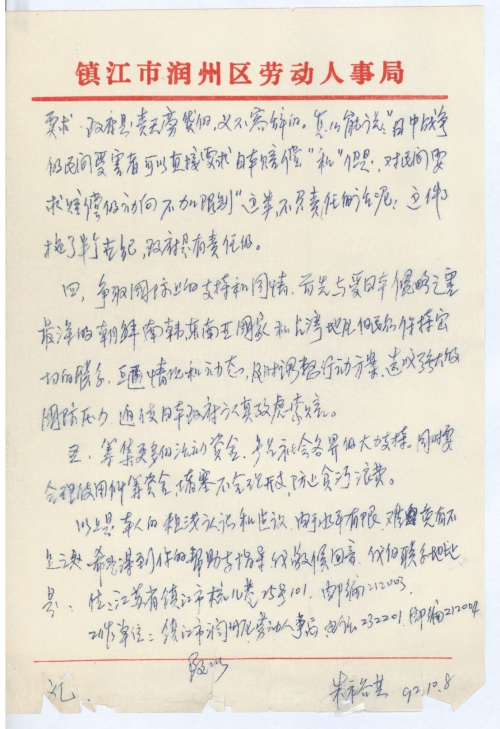 镇江市润州区劳动人事局
要求，政府是责无旁贷的，义不容辞的。怎么能说"日中战争
的民间受害者可以直接要求日本赔偿"和"但是，对民间要
求赔偿的动向不加限制"这类不负责任的话呢？这件事
拖了半个世纪，政府是有责任的。
四、争取国际上的支持和同情，首先与受日本侵略之害
最深的朝鲜南韩东南亚国家和台湾地区的民众保持密
切的联系，互通情况和动态，及时调整行动方案，造成强大的
国际压力，迫使日本政府认真考虑索赔。
五、筹集更多的活动资金，争取社会各界的大力支持，同时要
合理使用所筹资金，堵塞不合理开支，防止贪污浪费。
以上是本人的粗浅认识和建议，由于水平有限，难免有不
足之处，希望得到你的帮助与指导，仅敬候回音，我的联系地址
是：住：江苏省镇江市 巷25号101，邮编212003
工作单位：镇江市润州区劳动人事局，电话232201 邮编212004
致以
礼！
92.12.8